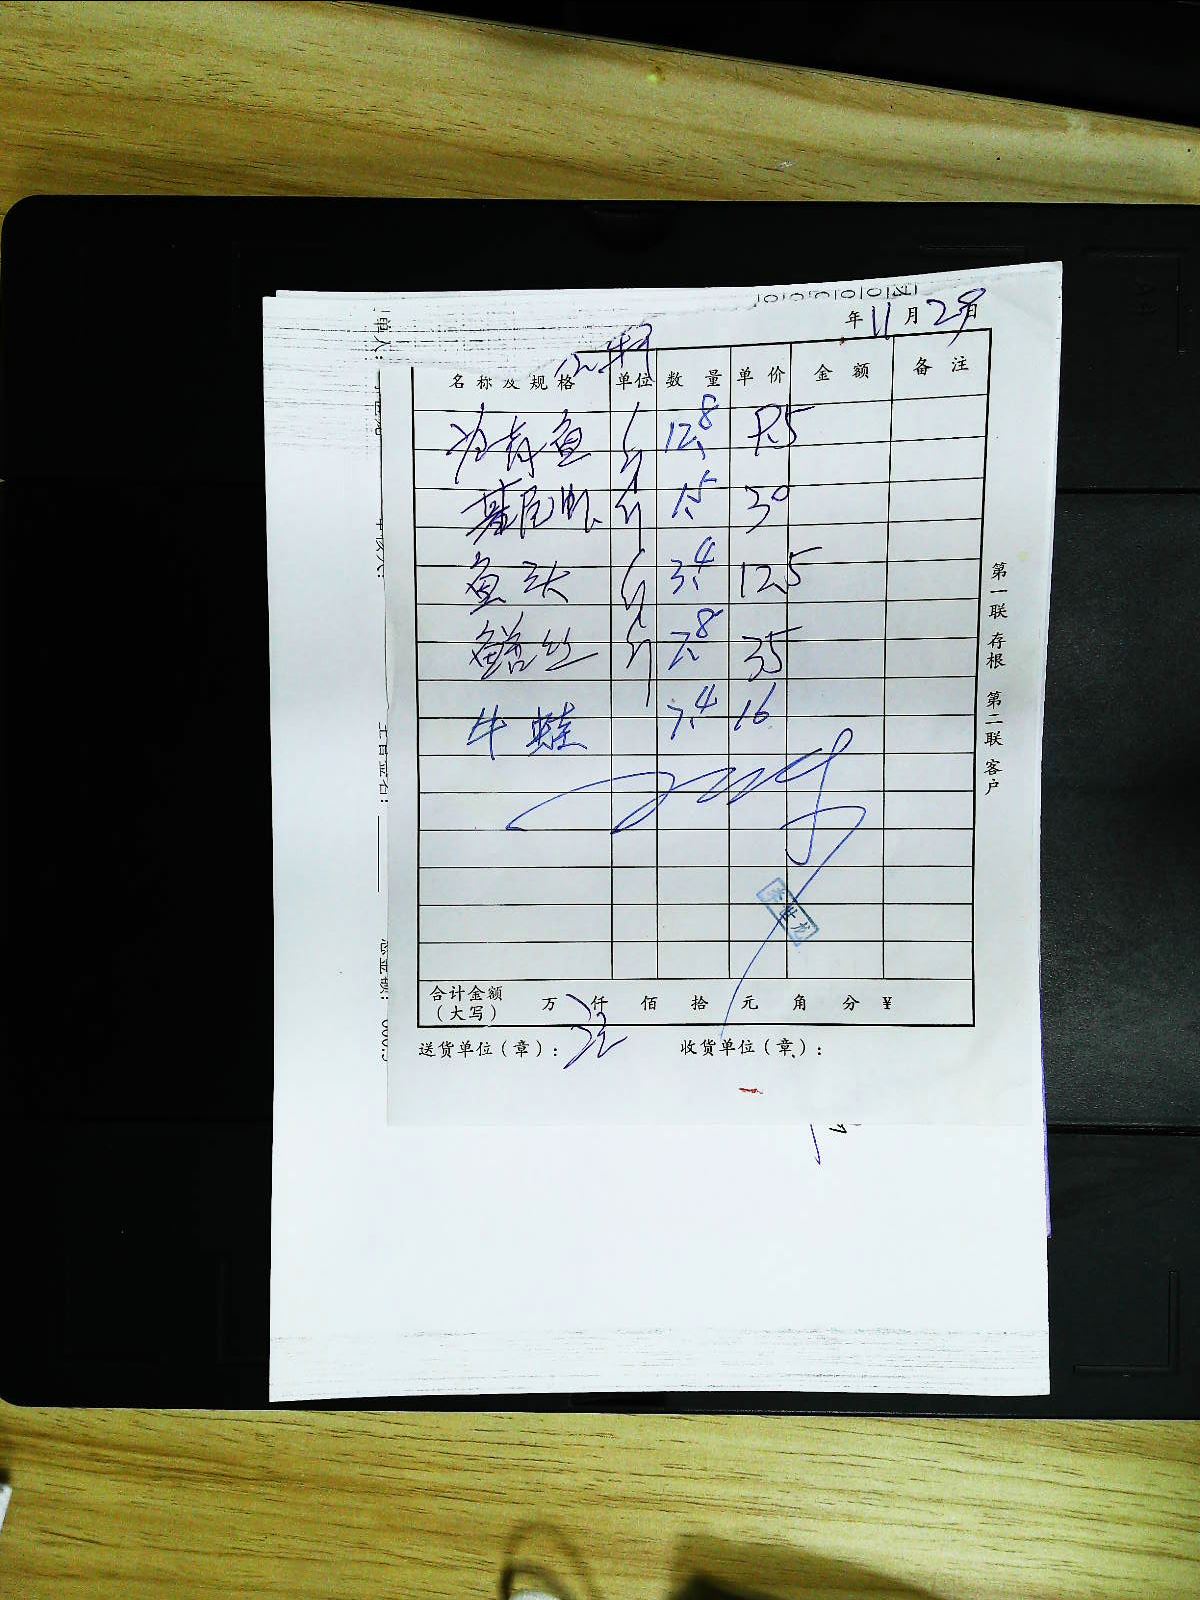 年 11 月 29 日
名称及规格 单位 数量 单价 金额 备注
活青鱼 斤 12.8 9.5
基尾虾 斤 1.5 30
鱼头 斤 3.4 12.5
鳝丝 斤 7.8 35
牛蛙 7.4 16
合计金额（大写） 万 仟 佰 拾 元 角 分 ¥
送货单位（章）： 收货单位（章）：
第一联 存根 第二联 客户